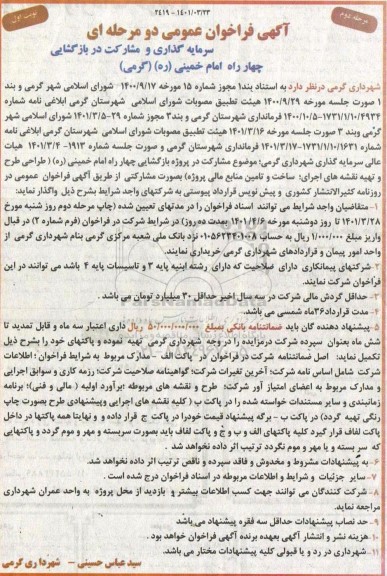 مرحله دوم
۲۴۱۹ -۱۴۰۱/۰۳/۲۳
نوبت اول
آگهی فراخوان عمومی دو مرحله ای
سرمایه گذاری و مشارکت در بازگشایی
چهار راه امام خمینی (ره) (گرمی)
شهرداری گرمی درنظر دارد به استناد بند۱ مجوز شماره ۱۵ مورخه ۱۴۰۰/۹/۱۷ شورای اسلامی شهر گرمی و بند
۱ صورت جلسه مورخه ۱۴۰۰/۹/۲۹ هیئت تطبیق مصوبات شورای اسلامی شهرستان گرمی ابلاغی نامه شماره
۱۷۳۱/۱/۱۰/۴۹۳۴-۱۴۰۰/۱۰/۵ فرمانداری شهرستان گرمی و بند۳ مجوز شماره ۲۹ -۱۴۰۱/۳/۵ شورای اسلامی شهر
گرمی وبند ۳ صورت جلسه مورخه ۱۴۰۱/۳/۱۶ هیئت تطبیق مصوبات شورای اسلامی شهرستان گرمی ابلاغی نامه
شماره ۱۷۳۱/۱/۱۰/۱۶۳۱-۱۴۰۱/۳/۱۷ فرمانداری شهرستان گرمی و صورت جلسه شماره ۱۹۱۳- ۱۴۰۱/۳/۴ هیات
عالی سرمایه گذاری شهرداری گرمی؛ موضوع مشارکت در پروژه بازگشایی چهارراه امام خمینی (ره) ( طراحی طرح
و تهیه نقشه های اجرای؛ ساخت و تامین منابع مالی پروژه) بصورت مشارکتی از طریق آگهی فراخوان عمومی در
روزنامه کثیرالانتشار کشوری و پیش نویس قرارداد پیوستی به شرکتهای واجد شرایط بشرح ذیل واگذار نماید:
۱- متقاضیان واجد شرایط می توانند اسناد فراخوان را در مدتهای تعیین شده (چاپ مرحله دوم روز شنبه مورخ
۱۴۰۱/۳/۲۸ تا روز دوشنبه مورخه ۱۴۰۱/۴/۶ بمدت ده روز) در شرایط شرکت در فراخوان (فرم شماره ۲) در قبال
واریز مبلغ ۱/۰۰۰/۰۰۰ ریال به حساب نزد بانک ملی شعبه مرکزی گرمی بنام شهرداری گرمی از
واحد امور پیمان و قراردادهای شهرداری گرمی خریداری نمایند.
۲-شرکتهای پیمانکاری دارای صلاحیت که دارای رشته ابنیه پایه ۳ و تاسیسات پایه ۴ باشد می توانند در این
فراخوان شرکت نمایند.
۳- حداقل گردش مالی شرکت در سه سال اخیر حداقل ۳۰ میلیارد تومان می باشد.
۴- مدت قرارداد۳۶ماه شمسی می باشد.
۵- پیشنهاد دهنده گان باید ضمانتنامه بانکی بمبلغ ۵۰/۰۰۰/۰۰۰/۰۰۰ ریال دارای اعتبار سه ماه و قابل تمدید تا
شش ماه بعنوان سپرده شرکت درمزایده را در وجه شهرداری گرمی تهیه نموده و پاکتهای خود را بشرح ذیل
تکمیل نماید: اصل ضمانتنامه شرکت در فراخوان در پاکت الف - مدارک مربوط به شرایط فراخوان ؛ اطلاعات
شرکت شامل اساس نامه شرکت؛ آخرین تغییرات شرکت؛ گواهینامه صلاحیت شرکت؛ رزمه کاری و سوابق اجرایی
و مدارک مربوط به اعضای امتیاز آور شرکت؛ طرح و نقشه های مربوطه ؛برآورد اولیه ( مالی و فنی)؛ برنامه
زمانبندی و سایر مستندات خواسته شده را در پاکت ب ( کلیه نقشه های اجرایی وپیشنهادی طرح بصورت چاپ
رنگی تهیه گردد) در پاکت ب - برگه پیشنهاد قیمت خودرا در پاکت ج قرار داده و و نهایتا همه پاکتها در داخل
پاکت لفاف قرار گیرد کلیه پاکتهای الف و ب و ج و پاکت لفاف باید بصورت سربسته و مهر و موم گردد و پاکتهایی
که سر بسته و یا مهر و موم نگردد ترتیب اثر داده نخواهد شد.
۶- به پیشنهادات مشروط و مخدوش و فاقد سپرده و ناقص ترتیب اثر داده نخواهد شد.
۷- سایر جزئیات و شرایط و اطلاعات مربوطه در اسناد فراخوان درج شده است.
۸- شرکت کنندگان می توانند جهت کسب اطلاعات بیشتر و بازدید از محل پروژه به واحد عمران شهرداری
مراجعه نماید.
۹- حد نصاب پیشنهادات حداقل سه فقره پیشنهاد می باشد
۱۰- هزینه نشر و انتشار آگهی بعهده برنده آگهی فراخوان خواهد بود.
۱۱- شهرداری در رد و یا قبولی کلیه پیشنهادات مختار می باشد.
سید عباس حسینی - شهرداری گرمی